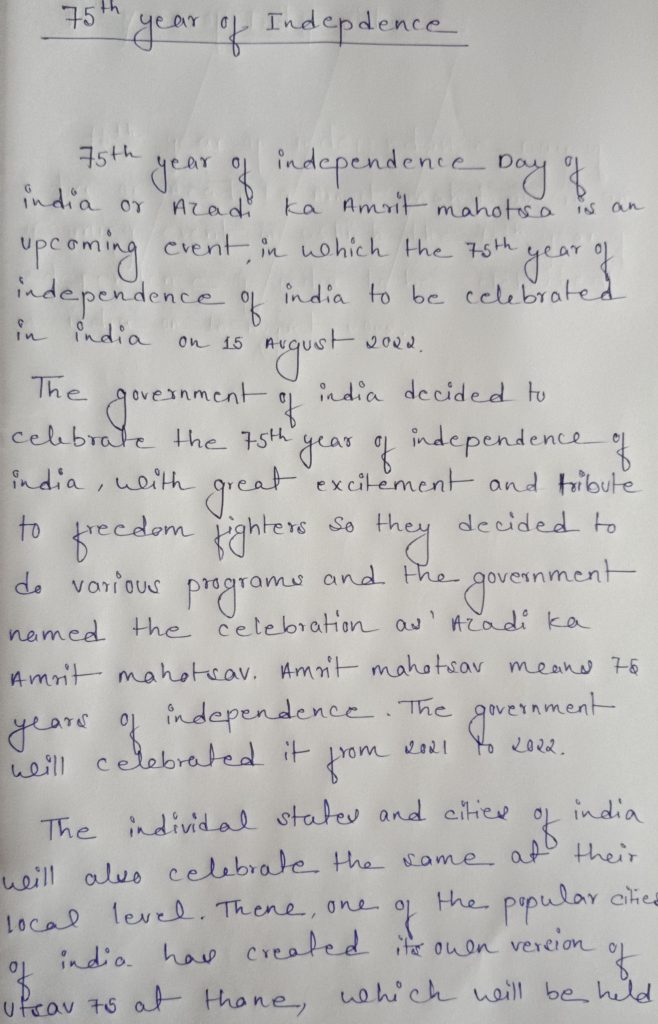 75th year of Indepdence
75th year of independence Day of
india or Azadi ka Amrit mahotsa is an
upcoming event, in which the 75th year of
independence of india to be celebrated
in india on 15 August 2022.
The government of india decided to
celebrate the 75th year of independence of
india, with great excitement and tribute
to freedom fighters so they decided to
do various programs and the government
named the celebration as' Azadi ka
Amrit mahotsav. Amrit mahotsav means 75
years of independence. The government
will celebrated it from 2021 to 2022.
The individal states and cities of india
will also celebrate the same at their
local level. Thene, one of the popular cities
of india has created its own version of
utsav 75 at thane, which will be held